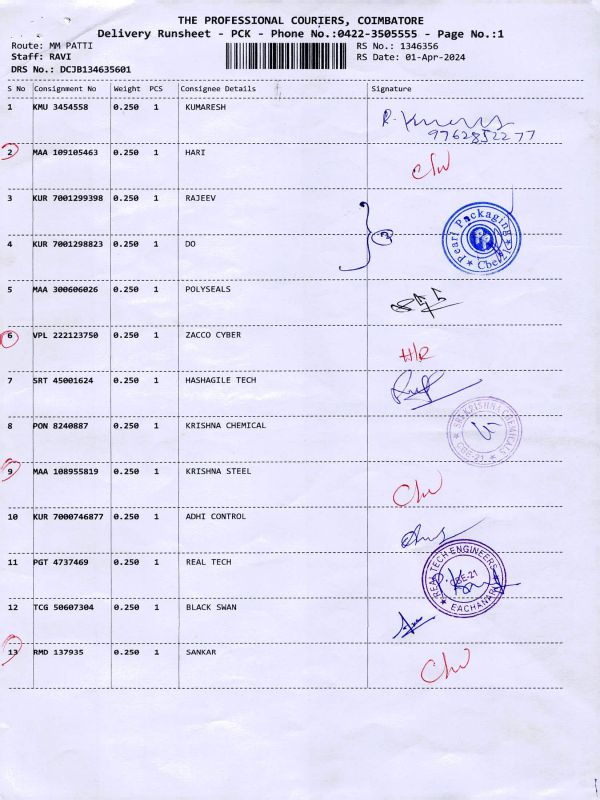 THE PROFESSIONAL COURIERS, COIMBATORE
Delivery Runsheet - PCK - Phone No.:0422-3505555 - Page No.:1
Route: MM PATTI RS No.: 1346356
Staff: RAVI RS Date: 01-Apr-2024
DRS No.: DCJB134635601
S No Consignment No Weight PCS Consignee Details Signature
1 KMU 3454558 0.250 1 KUMARESH
9762852277
2 MAA 109105463 0.250 1 HARI
3 KUR 7001299398 0.250 1 RAJEEV
Pearl Packaging
4 KUR 7001298823 0.250 1 DO
5 MAA 300606026 0.250 1 POLYSEALS
6 VPL 222123750 0.250 1 ZACCO CYBER
H/R
7 SRT 45001624 0.250 1 HASHAGILE TECH
8 PON 8240887 0.250 1 KRISHNA CHEMICAL
SRI KRISHNA CHEMICALS
CBE-21
9 MAA 108955819 0.250 1 KRISHNA STEEL
10 KUR 7000746877 0.250 1 ADHI CONTROL
11 PGT 4737469 0.250 1 REAL TECH
REAL TECH ENGINEERS
CBE-21
12 TCG 50607304 0.250 1 BLACK SWAN
13 RMD 137935 0.250 1 SANKAR